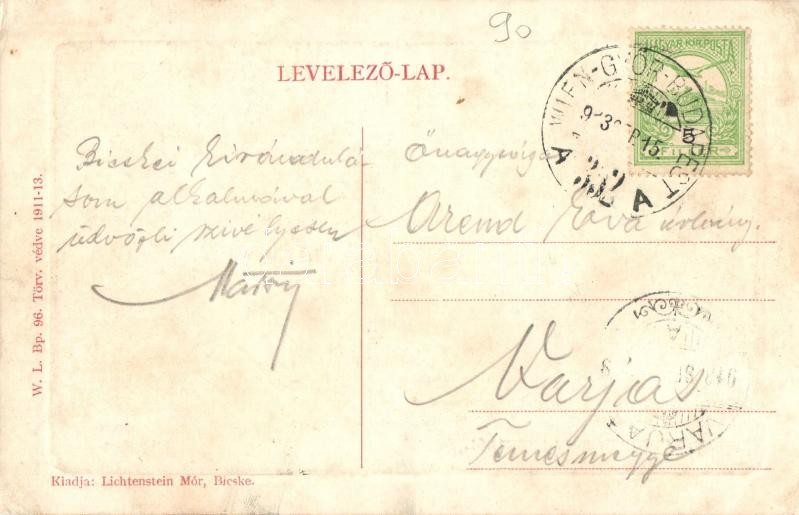 90
LEVELEZŐ-LAP.
MAGYAR KIR. POSTA
5
FILLÉR
WIEN-GYŐR-BUDAPEST
A 332 A
Bicskei kirándulá-
som alkalmával
üdvözli szivélyesen
Őnagysága
Arend Éva úrleány.
Varjas
Temesmegye
VARJAS
W. L. Bp. 96. Törv. védve 1911-13.
Kiadja: Lichtenstein Mór, Bicske.